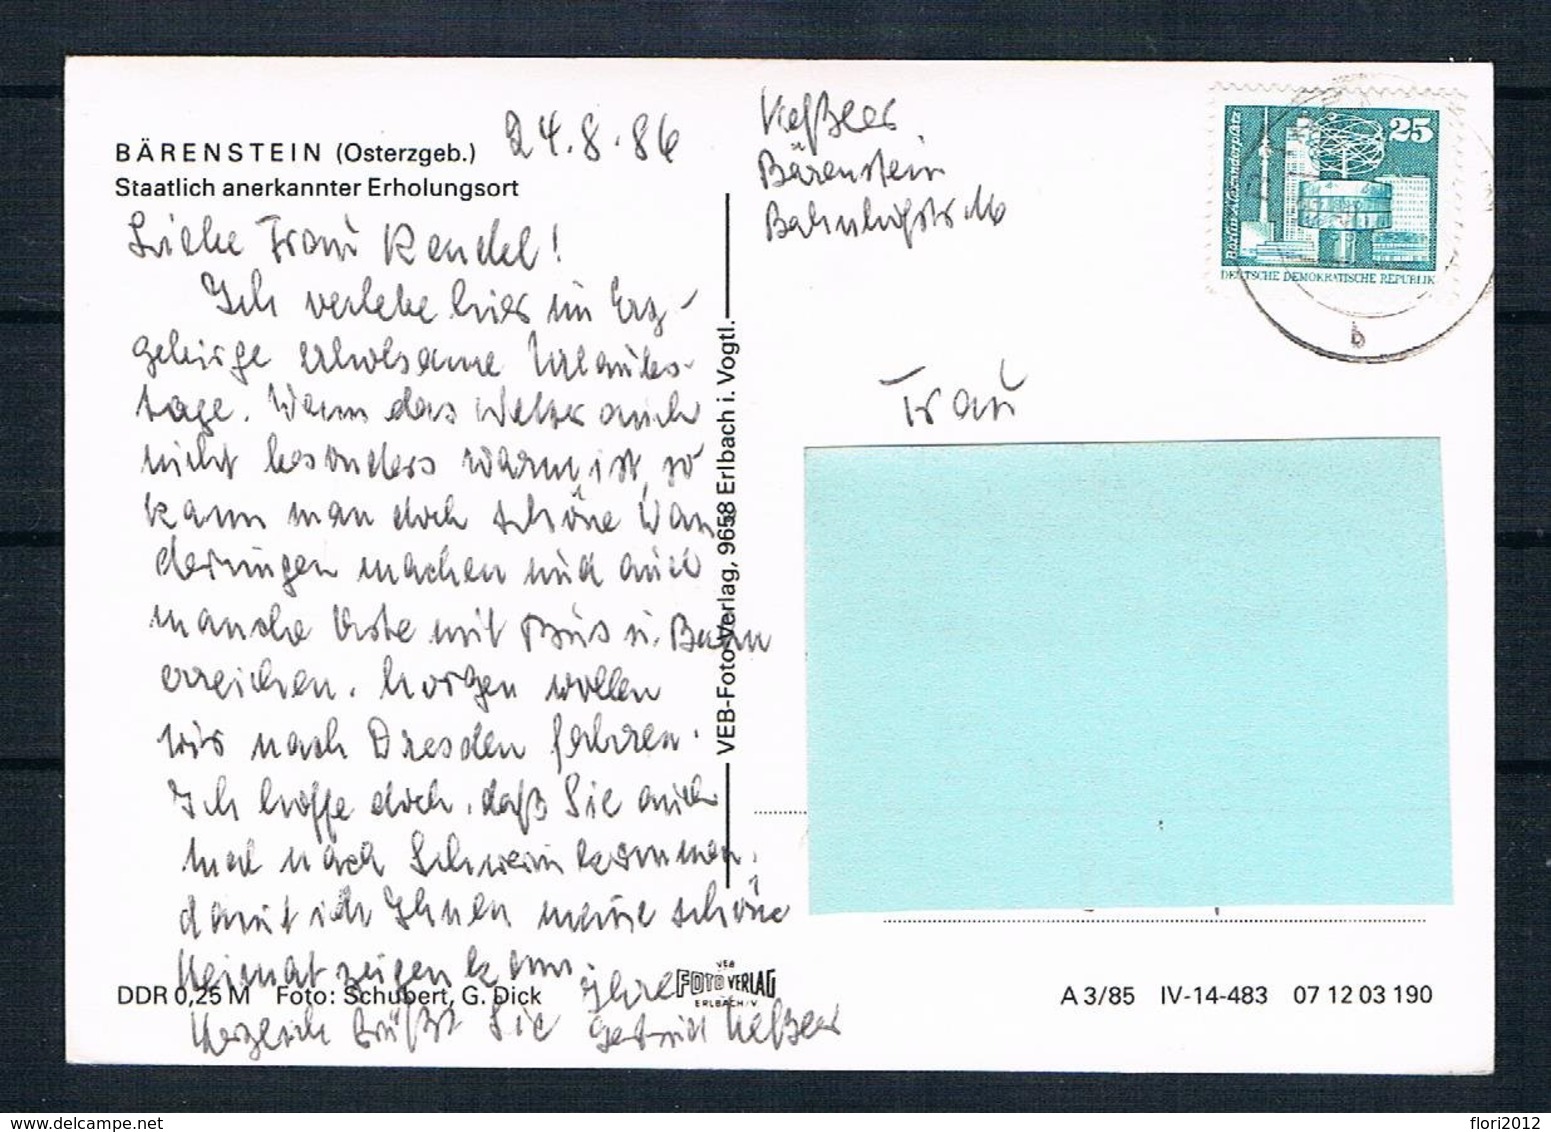 BÄRENSTEIN (Osterzgeb.)
Staatlich anerkannter Erholungsort
24.8.86
Keßler
Bärenstein
Bahnhofstr.
Liebe Frau Rendel!
Ich verlebe hier im Erz-
gebirge erholsame Urlaubs-
tage. Wenn das Wetter auch
nicht besonders warm ist, so
kann man doch schöne Wan
derungen machen und auch
manche Orte mit Bus u. Bahn
erreichen. Morgen wollen
wir nach Dresden fahren.
Ich hoffe doch, daß Sie auch
mal nach Schwerin kommen,
damit ich Ihnen meine schöne
Heimat zeigen kann.
Herzlich grüßt Sie Ihre
Gertrud Keßler
DDR 0,25 M Foto: Schubert, G. Dick
VEB-Foto-Verlag, 9658 Erlbach i. Vogtl.
VEB
FOTO VERLAG
ERLBACH/V.
25
Berlin, Alexanderplatz
DEUTSCHE DEMOKRATISCHE REPUBLIK
b
Frau
A 3/85 IV-14-483 07 12 03 190
flori2012